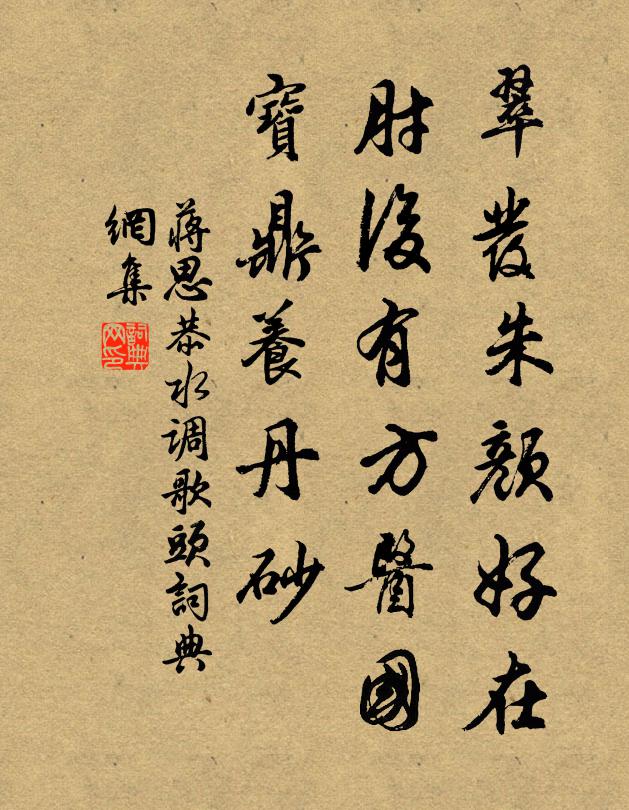 翠發朱顏好在
肘後有方醫國
寶鼎養丹砂
蔣思恭水调歌頭詞典
網集
詞典網印